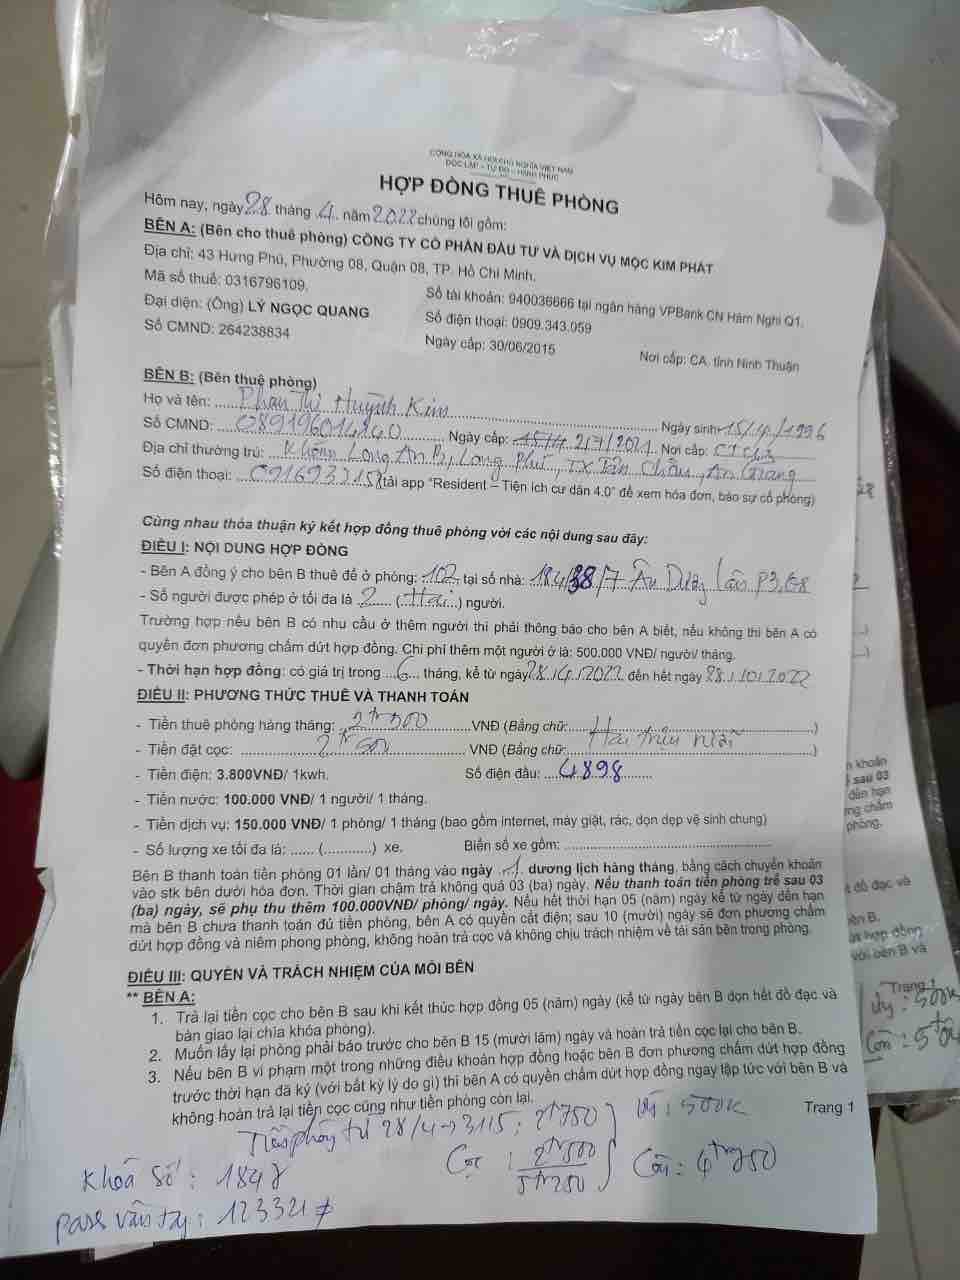 CỘNG HÒA XÃ HỘI CHỦ NGHĨA VIỆT NAM
ĐỘC LẬP - TỰ DO - HẠNH PHÚC
HỢP ĐỒNG THUÊ PHÒNG
Hôm nay, ngày 28 tháng 4 năm 2022 chúng tôi gồm:
BÊN A: (Bên cho thuê phòng) CÔNG TY CỔ PHẦN ĐẦU TƯ VÀ DỊCH VỤ MỘC KIM PHÁT
Địa chỉ: 43 Hưng Phú, Phường 08, Quận 08, TP. Hồ Chí Minh.
Mã số thuế: 0316796109. Số tài khoản: 940036666 tại ngân hàng VPBank CN Hàm Nghi Q1.
Đại diện: (Ông) LÝ NGỌC QUANG Số điện thoại: 0909.343.059
Số CMND: 264238834 Ngày cấp: 30/06/2015 Nơi cấp: CA. tỉnh Ninh Thuận
BÊN B: (Bên thuê phòng)
Họ và tên: Phan Thị Huỳnh Kim Ngày sinh: 15/4/1996
Số CMND: 089196014240 Ngày cấp: 2/7/2021 Nơi cấp:
Địa chỉ thường trú: Khóm Long An B, Long Phú, TX Tân Châu, An Giang
Số điện thoại: 0916933158 (tải app “Resident – Tiện ích cư dân 4.0” để xem hóa đơn, báo sự cố phòng)
Cùng nhau thỏa thuận ký kết hợp đồng thuê phòng với các nội dung sau đây:
ĐIỀU I: NỘI DUNG HỢP ĐỒNG
- Bên A đồng ý cho bên B thuê để ở phòng: 102 tại số nhà: 184/38/7 Âu Dương Lân P3, Q8
- Số người được phép ở tối đa là 2 (Hai) người.
Trường hợp nếu bên B có nhu cầu ở thêm người thì phải thông báo cho bên A biết, nếu không thì bên A có
quyền đơn phương chấm dứt hợp đồng. Chi phí thêm một người ở là: 500.000 VNĐ/ người/ tháng.
- Thời hạn hợp đồng: có giá trị trong 6 tháng, kể từ ngày 28/4/2022 đến hết ngày 28/10/2022
ĐIỀU II: PHƯƠNG THỨC THUÊ VÀ THANH TOÁN
- Tiền thuê phòng hàng tháng: 2tr500 VNĐ (Bằng chữ: Hai triệu rưỡi)
- Tiền đặt cọc: 2tr500 VNĐ (Bằng chữ: )
- Tiền điện: 3.800VNĐ/ 1kwh. Số điện đầu: 4898
- Tiền nước: 100.000 VNĐ/ 1 người/ 1 tháng.
- Tiền dịch vụ: 150.000 VNĐ/ 1 phòng/ 1 tháng (bao gồm internet, máy giặt, rác, dọn dẹp vệ sinh chung)
- Số lượng xe tối đa là: ...... (...........) xe. Biển số xe gồm:
Bên B thanh toán tiền phòng 01 lần/ 01 tháng vào ngày 1 dương lịch hàng tháng, bằng cách chuyển khoản
vào stk bên dưới hóa đơn. Thời gian chậm trả không quá 03 (ba) ngày. Nếu thanh toán tiền phòng trễ sau 03
(ba) ngày, sẽ phụ thu thêm 100.000VNĐ/ phòng/ ngày. Nếu hết thời hạn 05 (năm) ngày kể từ ngày đến hạn
mà bên B chưa thanh toán đủ tiền phòng, bên A có quyền cắt điện; sau 10 (mười) ngày sẽ đơn phương chấm
dứt hợp đồng và niêm phong phòng, không hoàn trả cọc và không chịu trách nhiệm về tài sản bên trong phòng.
ĐIỀU III: QUYỀN VÀ TRÁCH NHIỆM CỦA MỖI BÊN
** BÊN A:
1. Trả lại tiền cọc cho bên B sau khi kết thúc hợp đồng 05 (năm) ngày (kể từ ngày bên B dọn hết đồ đạc và
bàn giao lại chìa khóa phòng).
2. Muốn lấy lại phòng phải báo trước cho bên B 15 (mười lăm) ngày và hoàn trả tiền cọc lại cho bên B.
3. Nếu bên B vi phạm một trong những điều khoản hợp đồng hoặc bên B đơn phương chấm dứt hợp đồng
trước thời hạn đã ký (với bất kỳ lý do gì) thì bên A có quyền chấm dứt hợp đồng ngay lập tức với bên B và
không hoàn trả lại tiền cọc cũng như tiền phòng còn lại.
Trang 1
Tiền phòng từ 28/4 → 31/5: 2tr750 Ưu: 500K
Cọc: 2tr500 Còn: 4tr750
5tr250
Khoá số: 1848
pass vân tay: 123321#
n khoản
sau 03
đến hạn
ng chấm
phòng.
đồ đạc và
bên B.
ứt hợp đồng
với bên B và
Trang 1
: 500K
Còn: